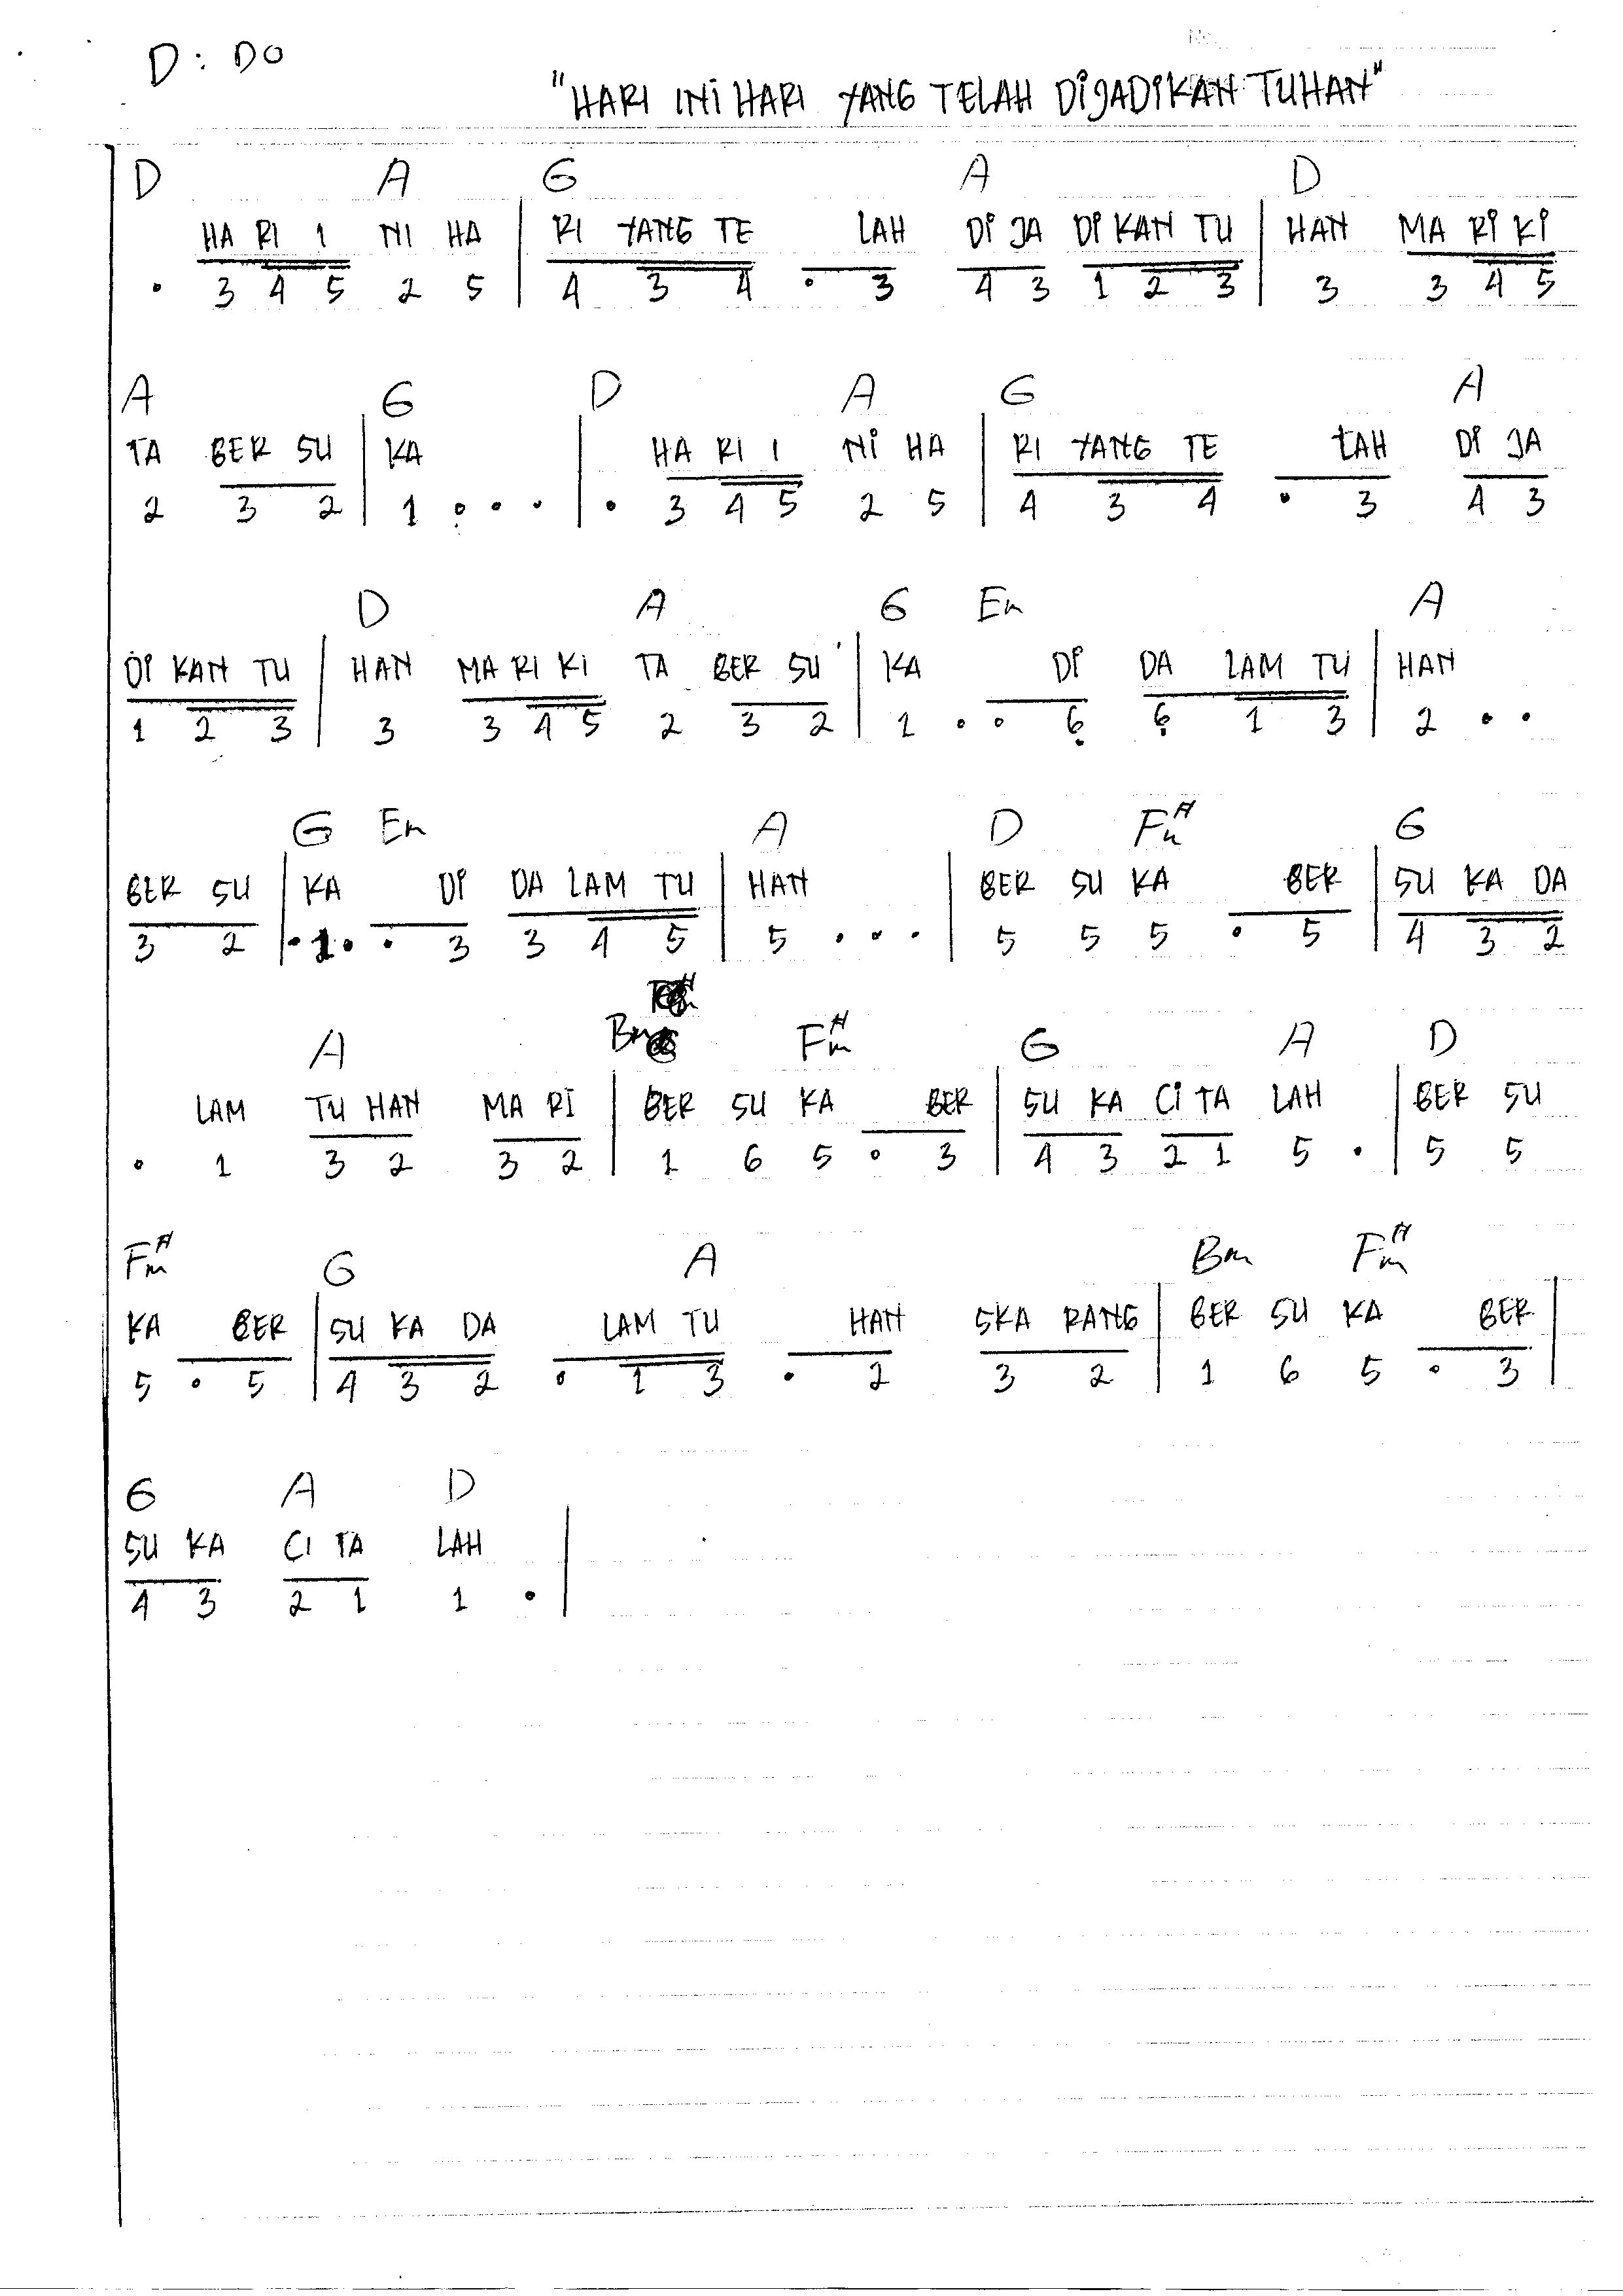 D : DO
"HARI INI HARI YANG TELAH DIJADIKAN TUHAN"
D A G A D
HA RI I NI HA | RI YANG TE LAH DI JA DI KAN TU | HAN MA RI KI
. 3 4 5 2 5 | 4 3 4 . 3 4 3 1 2 3 | 3 3 4 5
A G D A G A
TA BER SU | KA | HA RI I NI HA | RI YANG TE LAH DI JA
2 3 2 | 1 . . . | . 3 4 5 2 5 | 4 3 4 . 3 4 3
D A G Em A
DI KAN TU | HAN MA RI KI TA BER SU | KA DI DA LAM TU | HAN
1 2 3 | 3 3 4 5 2 3 2 | 1 . . 6̣ 6̣ 1 3 | 2 . .
G Em A D F#m G
BER SU | KA DI DA LAM TU | HAN | BER SU KA BER | SU KA DA
3 2 | . 1 . . 3 3 4 5 | 5 . . . | 5 5 5 . 5 | 4 3 2
A Bm F#m G A D
LAM TU HAN MA RI | BER SU KA BER | SU KA CI TA LAH | BER SU
. 1 3 2 3 2 | 1 6 5 . 3 | 4 3 2 1 5 . | 5 5
F#m G A Bm F#m
KA BER | SU KA DA LAM TU HAN SKA RANG | BER SU KA BER |
5 . 5 | 4 3 2 . 1 3 . 2 3 2 | 1 6 5 . 3 |
G A D
SU KA CI TA LAH |
4 3 2 1 1 . |